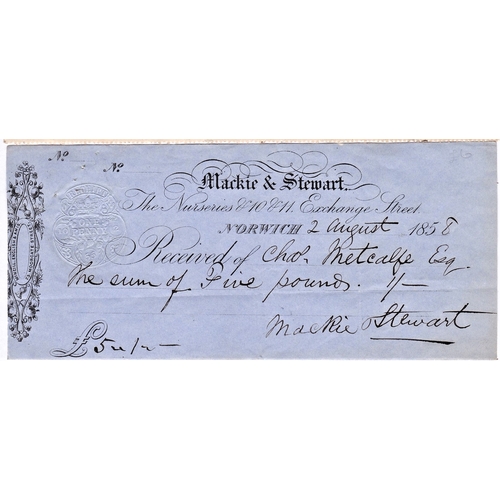 No.
No.
Mackie & Stewart.
The Nurseries & 10 & 11. Exchange Street.
NORWICH 2 August 1858
Received of Chas. Metcalfe Esq.
The sum of Five pounds. 1/-
Mackie & Stewart
£5 "/"-